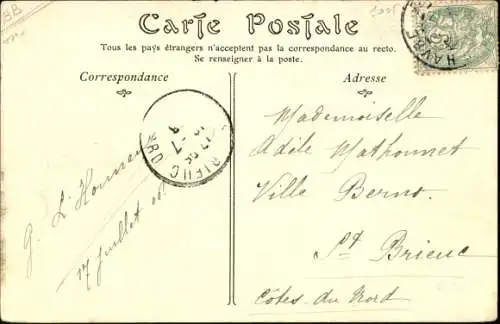 Carte Postale
Tous les pays étrangers n'acceptent pas la correspondance au recto.
Se renseigner à la poste.
Correspondance
Adresse
G. L'Honneur
17 Juillet
Mademoiselle
Adèle Mathonnet
Ville Berno
St Brieuc
Côtes-du-Nord
HAVRE
BRIEUC